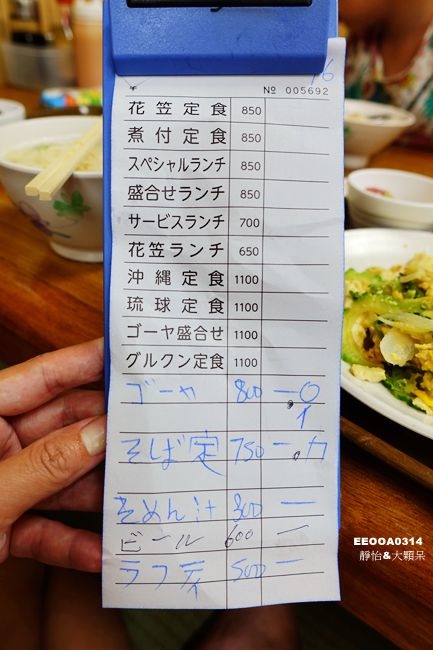 16
No 005692
花笠定食 850
煮付定食 850
スペシャルランチ 850
盛合せランチ 850
サービスランチ 700
花笠ランチ 650
沖縄定食 1100
琉球定食 1100
ゴーヤ盛合せ 1100
グルクン定食 1100
ゴーヤ 800 一
そば定 750 一 カ
そめん汁 300 一
ビール 600 一
ラフティ 500 一
EEOOA0314
靜怡&大顆呆